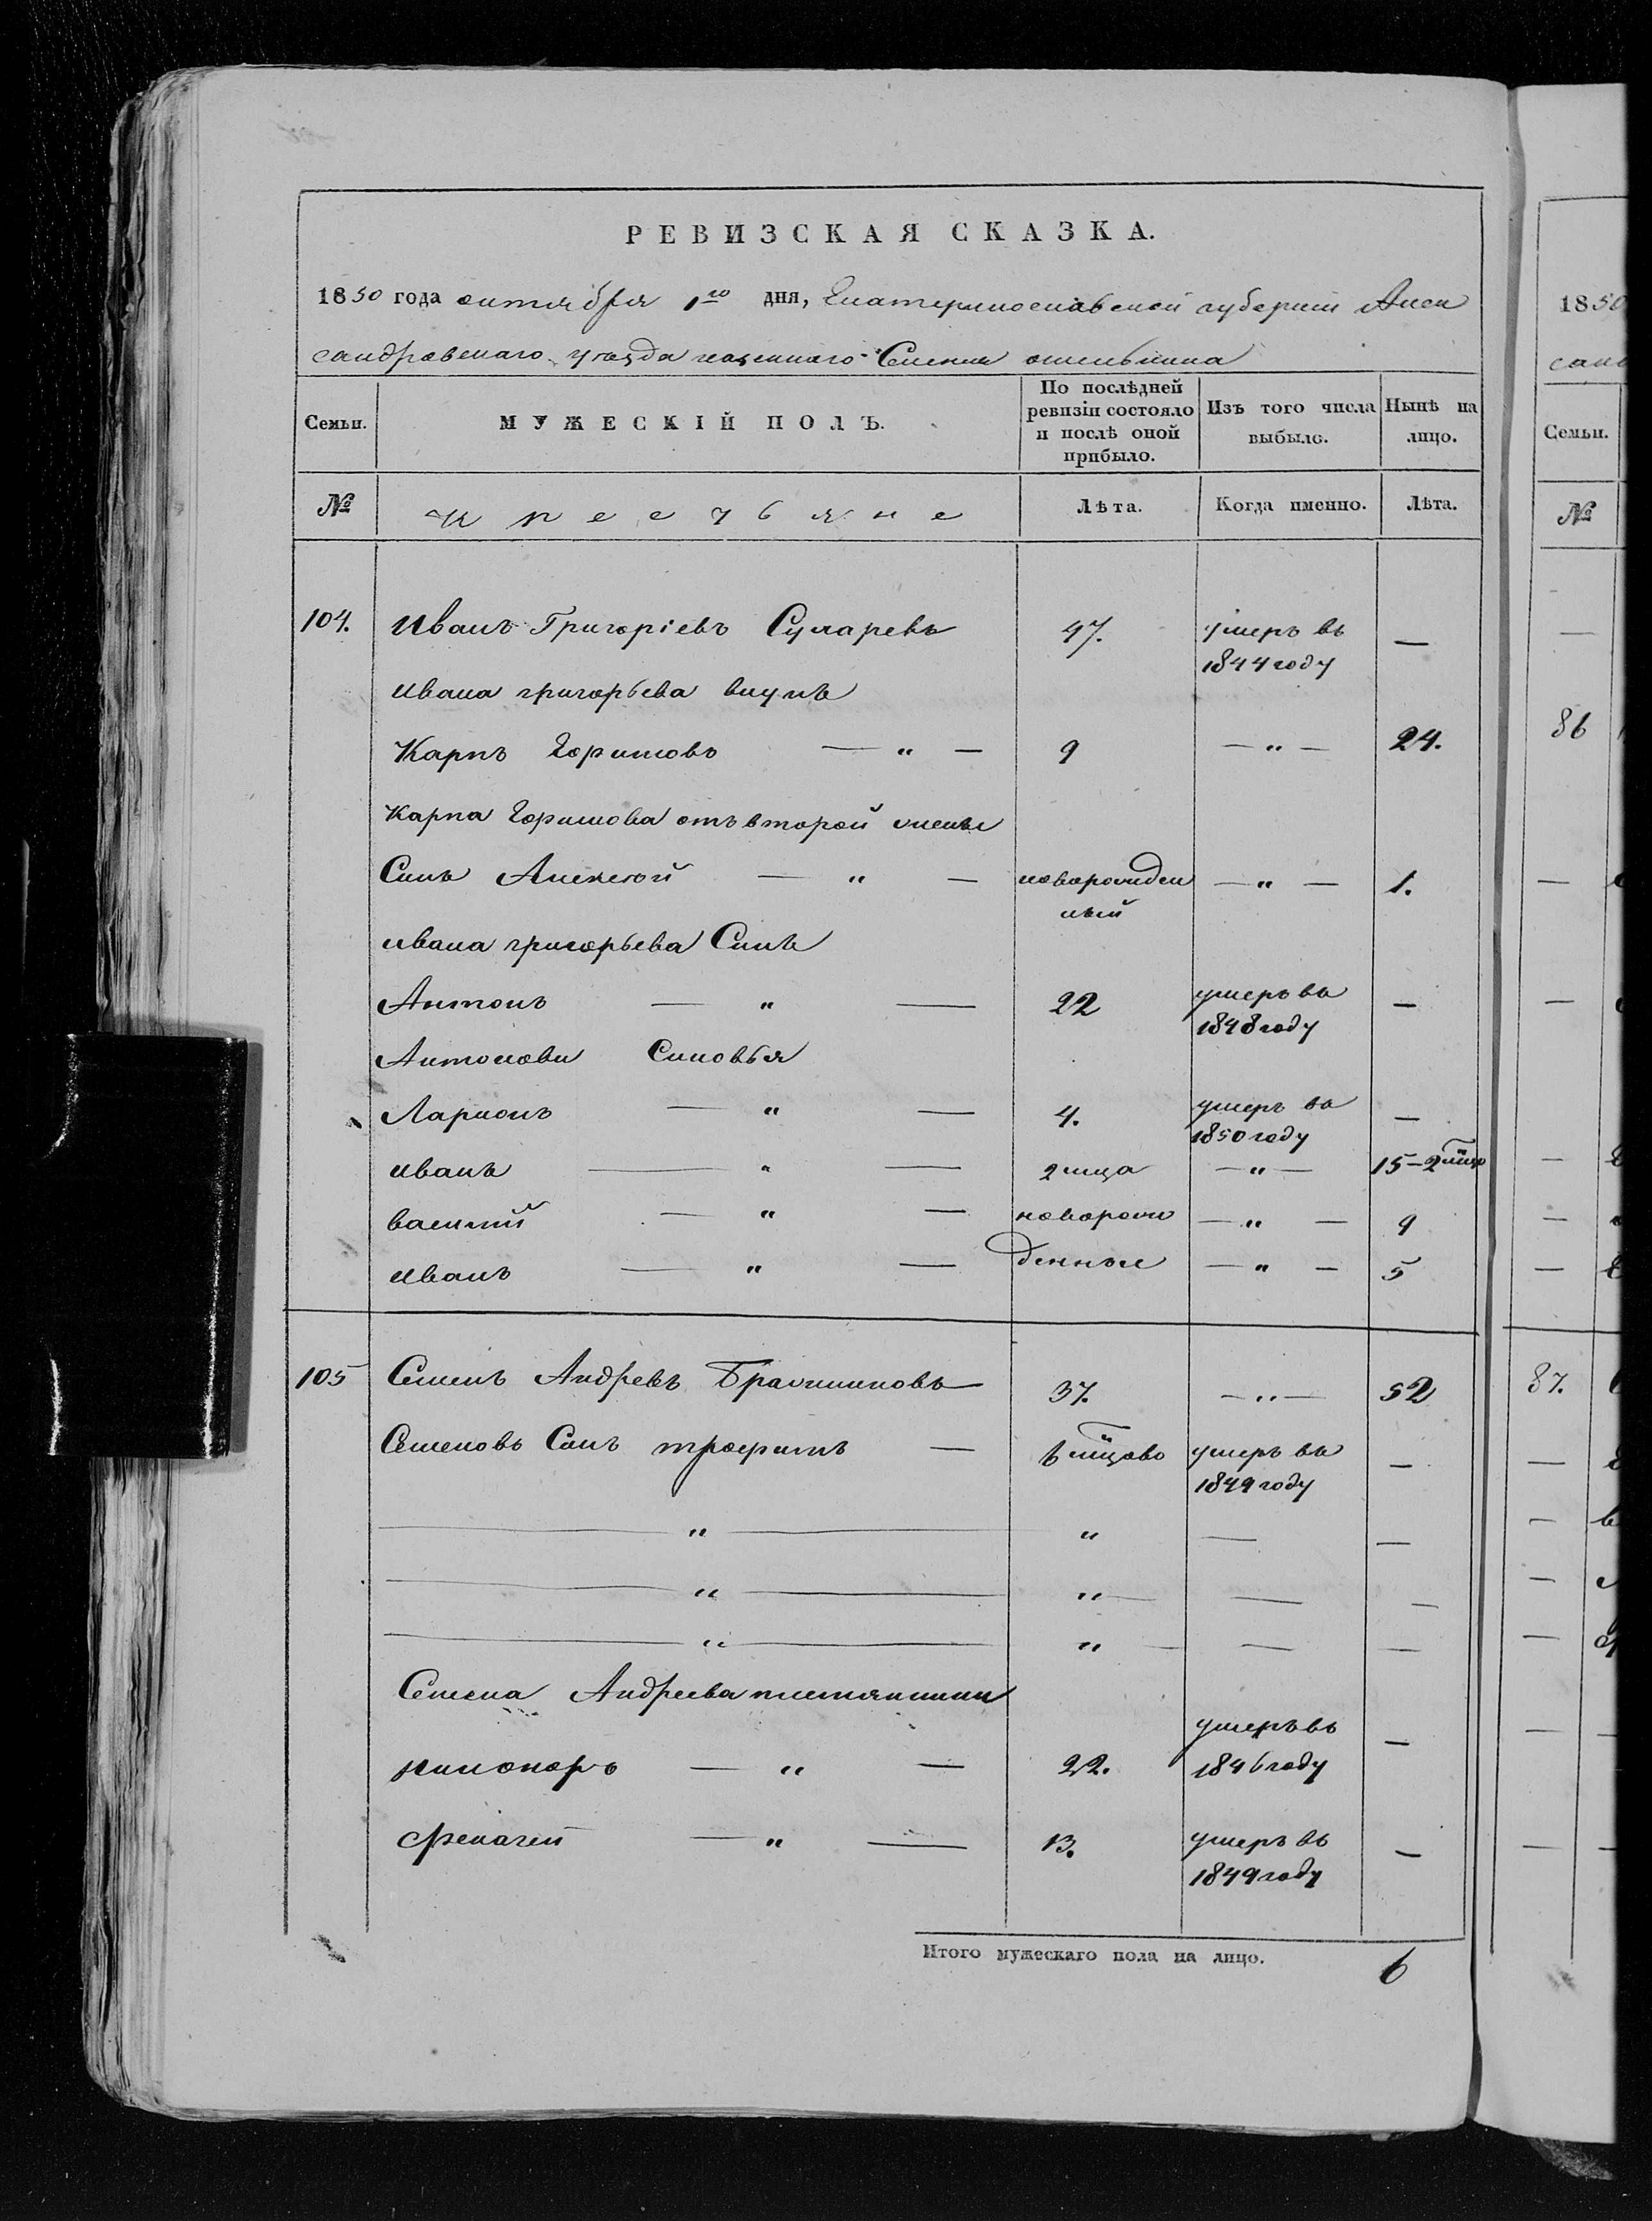 РЕВИЗСКАЯ СКАЗКА.
1850 года октября 1го дня, Екатеринославской губернии Алек
сандровскаго уезда казеннаго Селения
Семьи. МУЖЕСКІЙ ПОЛЪ. По послѣдней ревизіи состояло и послѣ оной прибыло. Изъ того числа выбыло. Нынѣ на лицо.
№ Крестьяне Лѣта. Когда именно. Лѣта.
104. Иванъ Григоріевъ 47. умеръ въ —
1844 году
Ивана григорьева внукъ
Карпъ — " — 9 — " — 24.
Карпа отъ второй жены
Сынъ Алексей — " — новорожден — " — 1.
ный
Ивана григорьева Сынъ
Антонъ — " — 22 умеръ въ —
1848 году
Антоновы Сыновья
Ларионъ — " — 4. умеръ въ —
1850 году
Иванъ — " — 2 мца — " — 15-2
василий — " — новорож — " — 9
Иванъ — " — денные — " — 5
105 Семенъ Андревъ 37. — " — 52
Семеновъ Сынъ трофимъ — 6 мцово умеръ въ —
1849 году
— " — " — —
— " — " — — —
— " — " — — —
Семена Андреева племянники
никоноръ — " — 22. умеръ въ —
1846 году
— " — 13. умеръ въ —
1849 году
Итого мужескаго пола на лицо. 6
1850
Семьи.
№
86
87.